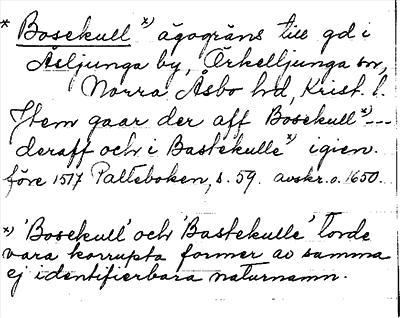 * Bosekull *) ägogräns till gd i
Åsljunga by, Örkelljunga sn,
Norra Åsbo hd, Krist. l.
Item gaar der aff Bosekull *) ---
deraff och i Bastekulle *) igien.
före 1517 Palteboken, s. 59. avskr. o. 1650.
*) 'Bosekull' och 'Bastekulle' torde
vara korrupta former av samma
ej identifierbara naturnamn.